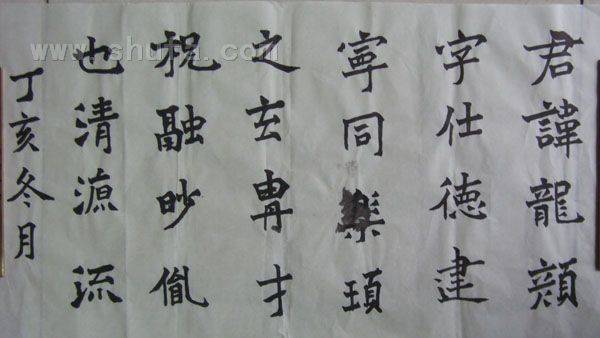 君諱龍顔
字仕徳建
寧同樂頊
之玄胄才
祝融眇胤
也清源流
丁亥冬月
www.shufa.com